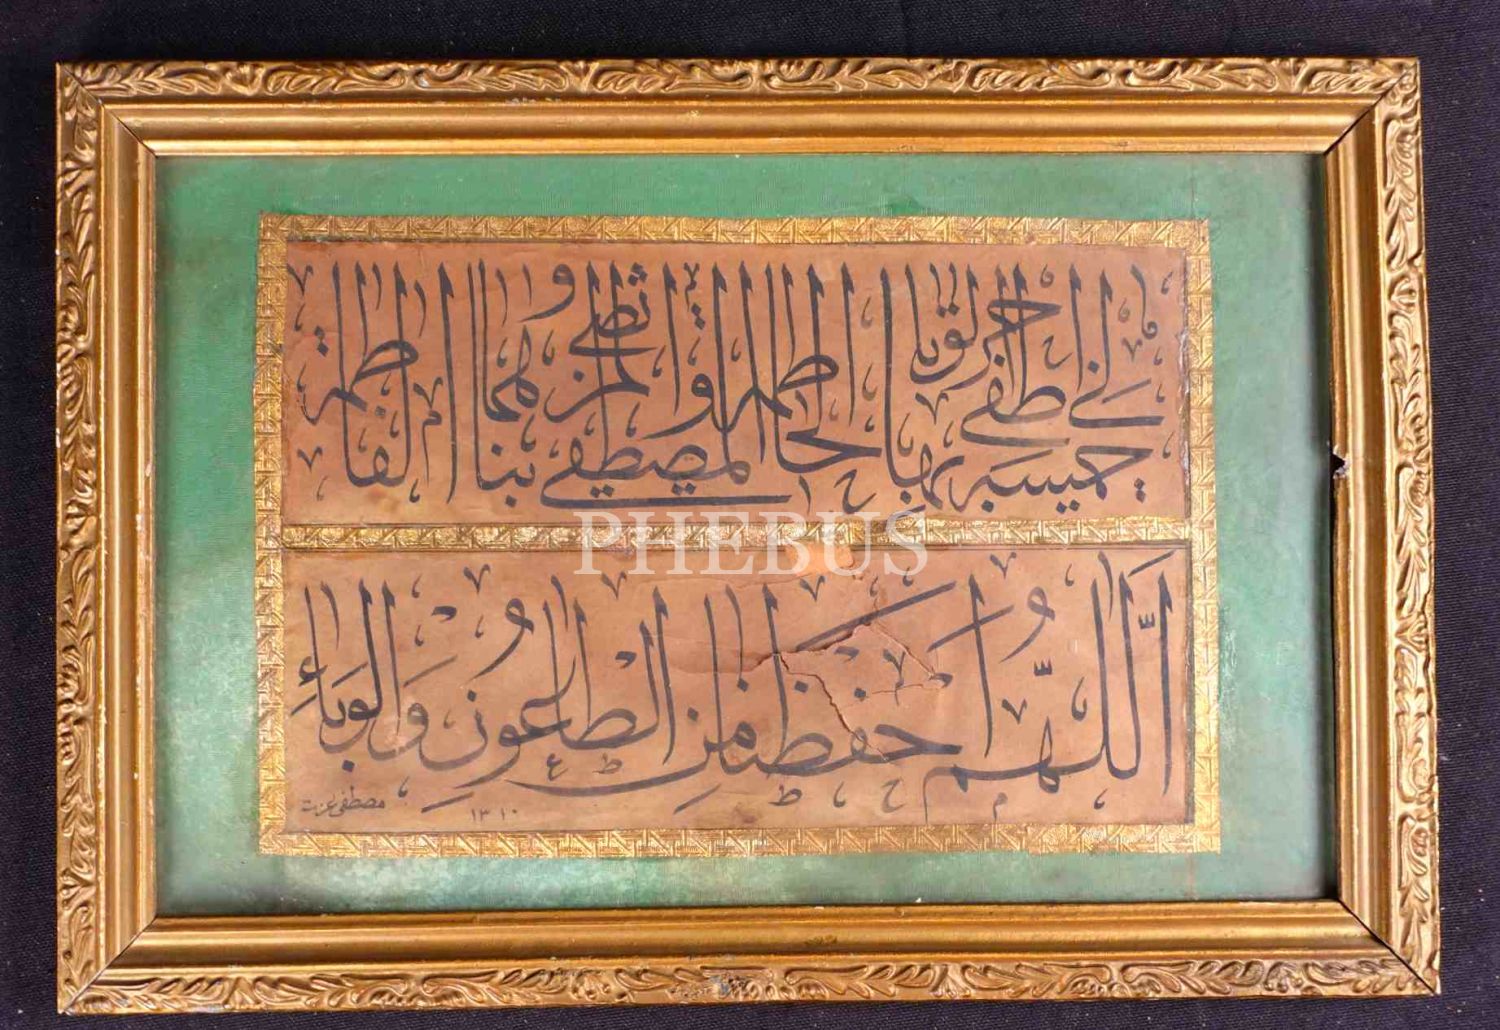 لي خمسة أطفي بها حر الوباء الحاطمة
المصطفى والمرتضى وابناهما والفاطمة
PHEBUS
اَللّٰهُمَّ احفظنا مِنَ الطاعونِ وَالوباءِ
مصطفى عزت
١٣١٠